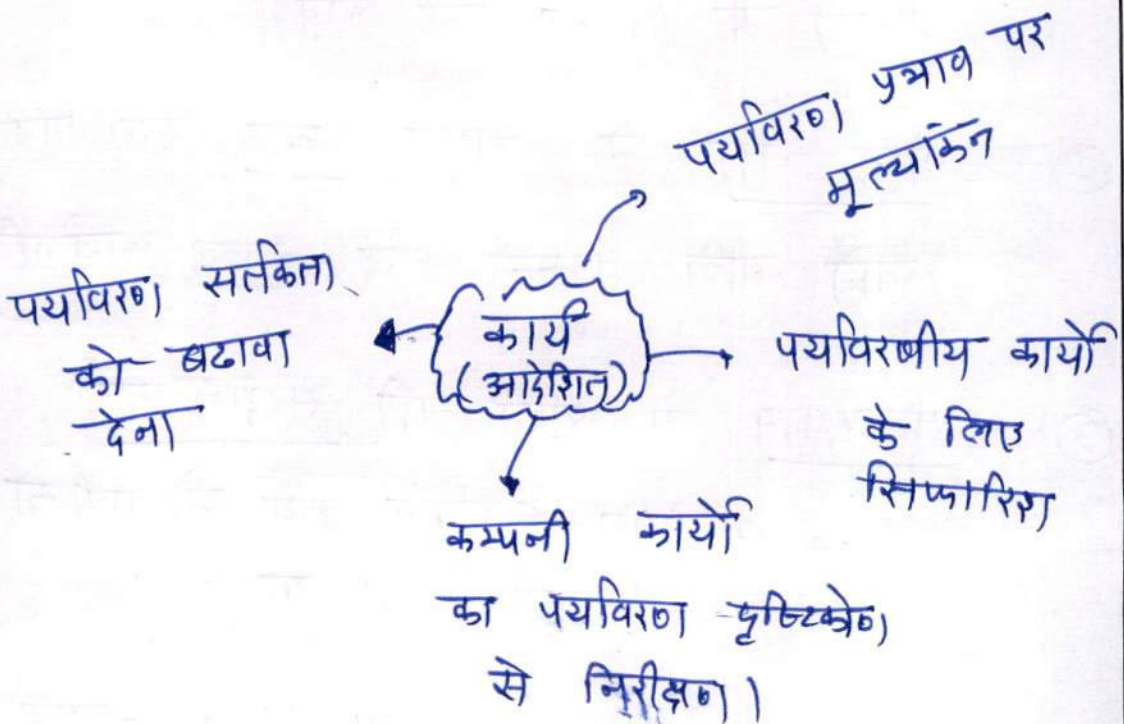 पर्यावरण प्रभाव पर
मूल्यांकन
पर्यावरण सर्तकता
को बढावा
देना
कार्य
(आदेशित)
पर्यावरणीय कार्यों
के लिए
सिफारिश
कम्पनी कार्यों
का पर्यावरण दृष्टिकोण
से निरीक्षण।